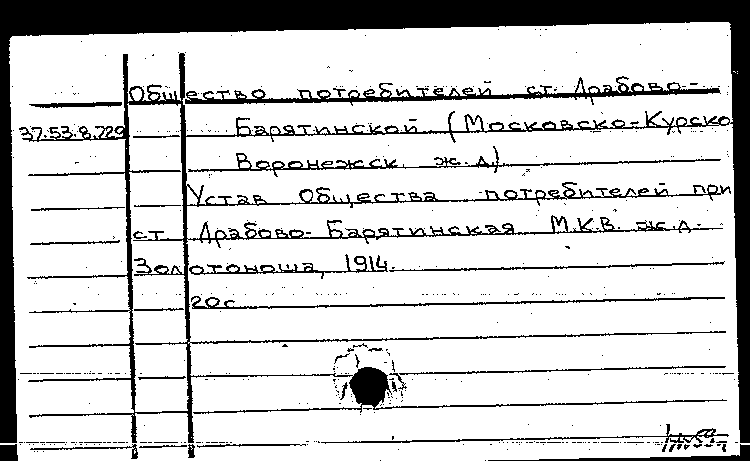 Общество потребителей ст. Драбово-
37.53.8.729 Барятинской (Московско-Курско
Воронежск. ж.д.)
Устав Общества потребителей при
ст. Драбово-Барятинская М.К.В. ж.д.
Золотоноша, 1914.
20с